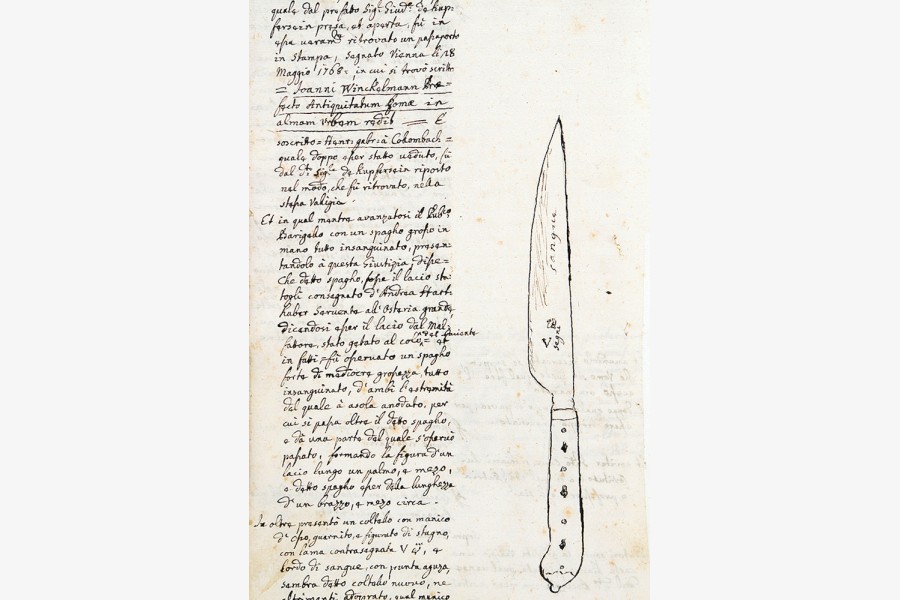 quale dal prefatto Sig.r Giud.e de Kup:
fersein presa, et aperta, fù in
essa veram.te ritrovato un passaporto
in stampa, segnato Vienna li 28
Maggio 1768:, in cui si trovò scritto
= Joanni Winckelmann Præ=
fecto Antiquitatum Romæ in
almam Urbem redit = E
soscritto = Henr: Gabr: à Collombach =
quale doppo esser stato veduto, fù
dal d.to Sig.r de Kupfersein riposto
nel modo, che fù ritrovato, nella
stessa Valigia.
Et in qual mentre avanzatosi il Pub.co
Barigello con un spagho grosso in
mano tutto insanguinato, presen:
tandolo à questa Giustizia, disse=
Che detto spagho, fosse il lacio sta:
togli consegnato d'Andrea Hart:
haber Servente all'Osteria grande
dicendosi esser il lacio dal Mal:
fattore, stato gettato al collo = et
del Paziente
in fatti, fù osservato un spagho
forte di mediocre grossezza, tutto
insanguinato, d'ambi l'estremità
del quale à asola anodato, per
cui si passa oltre il detto spagho,
e dà una parte del quale s'osservò
passato, formando la figura d'un
lacio lungo un palmo, e mezo,
e detto spagho esser della lunghezza
d'un brazzo, e mezo circa.
In oltre presentò un coltello con manico
d'osso, guarnito, e figurato di stagno,
con lama contrasegnata V W, e
lordo di sangue, con punta aguza,
sembra detto coltello nuovo, ne
altrimenti adoprato, qual manico
sangue
V W
segni